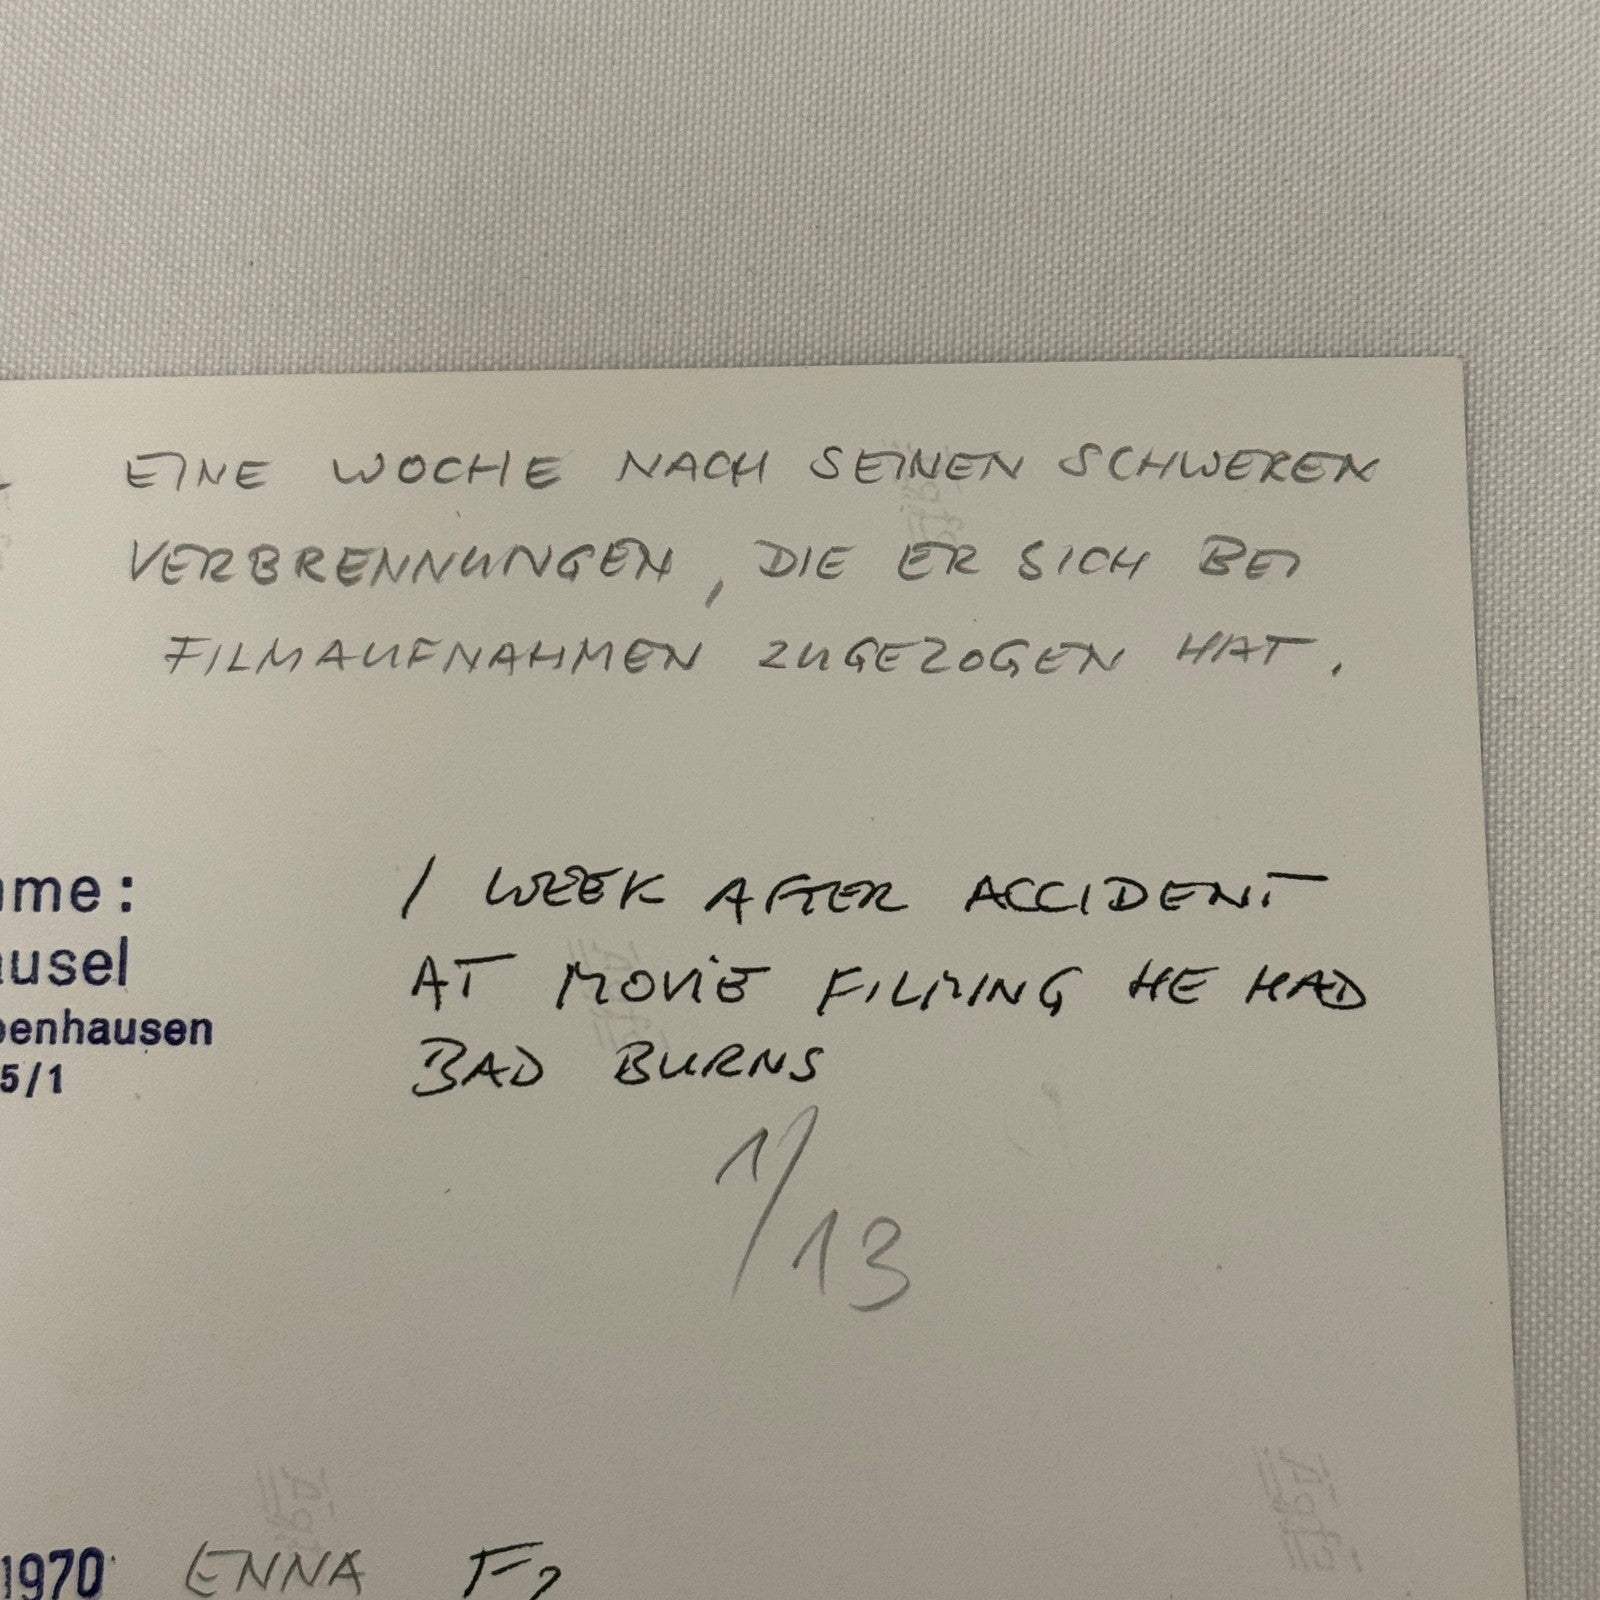 EINE WOCHE NACH SEINEN SCHWEREN
VERBRENNUNGEN, DIE ER SICH BEI
FILMAUFNAHMEN ZUGEZOGEN HAT.
ame:
ausel
benhausen
5/1
1 WEEK AFTER ACCIDENT
AT MOVIE FILMING HE HAD
BAD BURNS
1/13
1970 ENNA F2